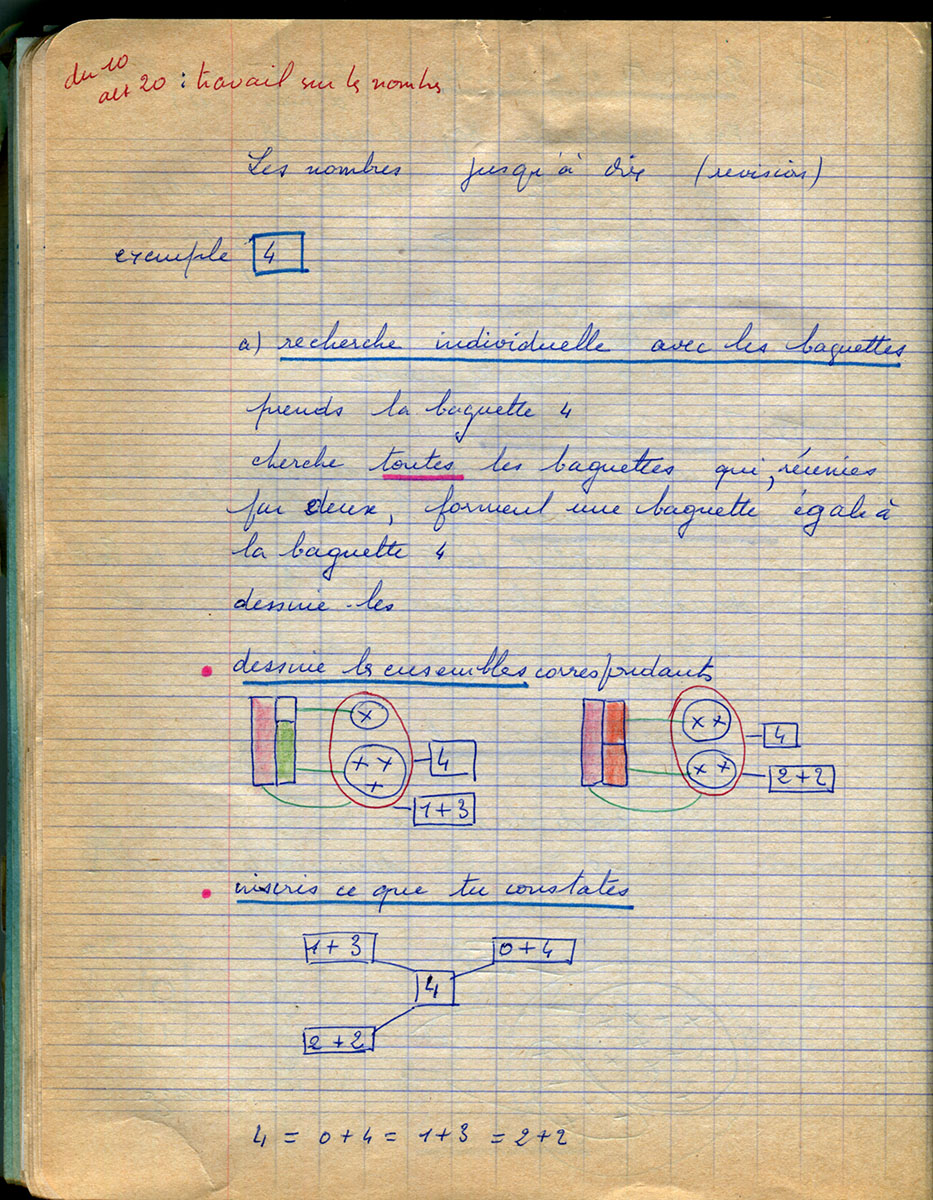 du 10
au 20 : travail sur les nombres
Les nombres jusqu'à dix (revision)
exemple 4
a) recherche individuelle avec les baguettes
prends la baguette 4
cherche toutes les baguettes qui, réunies
par deux, forment une baguette égale à
la baguette 4
dessine-les
dessine les ensembles correspondants
4
1+3
4
2+2
inscris ce que tu constates
1+3 0+4
4
2+2
4 = 0+4 = 1+3 = 2+2